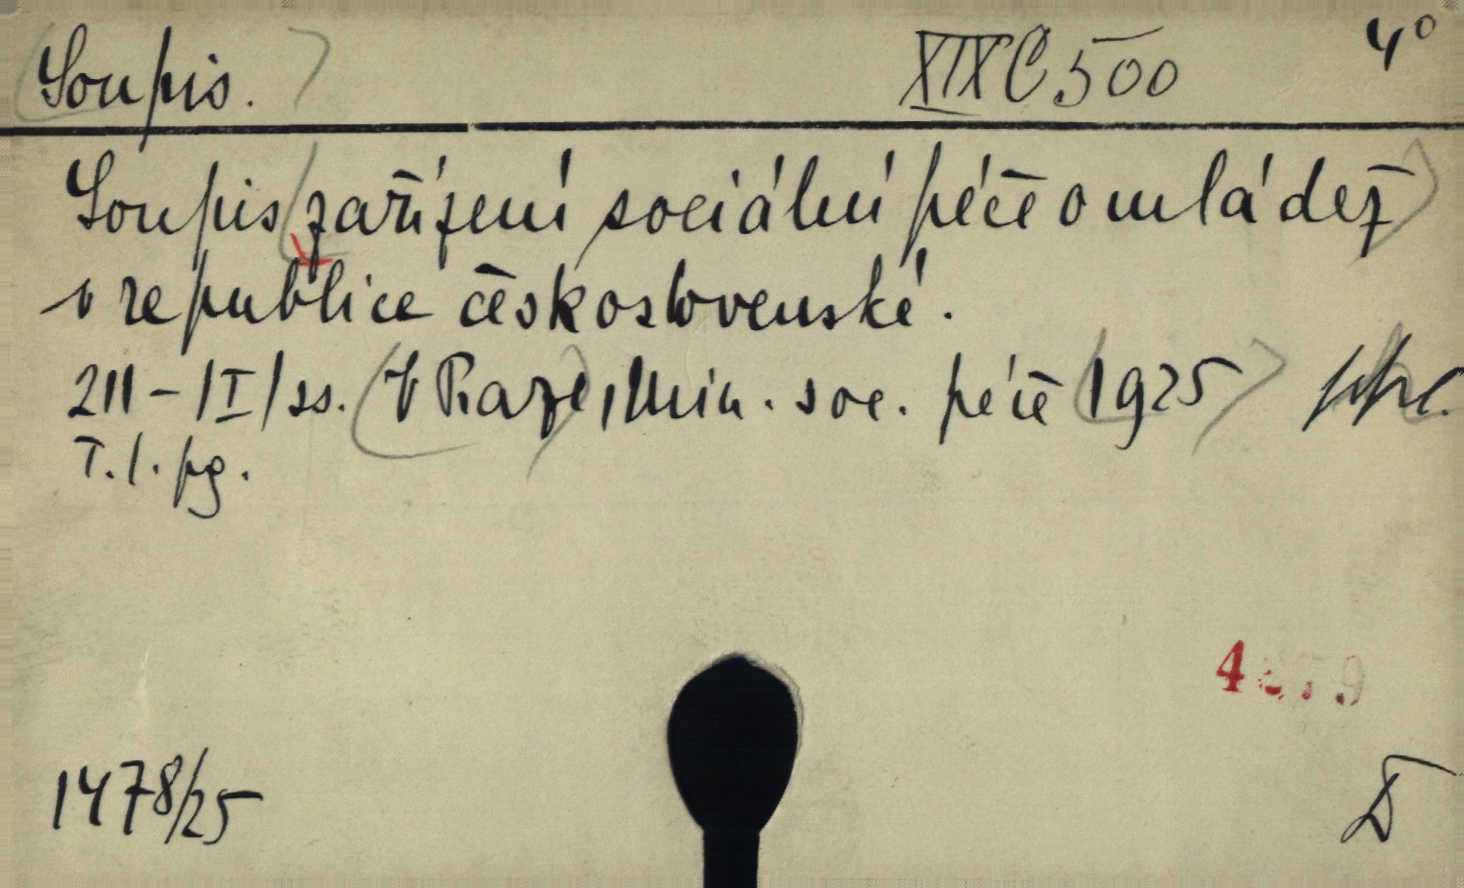 Soupis. XIX C 500 4°
Soupis zařízení sociální péče o mládež
v republice československé.
211 - |I| ss. V Praze, Min. soc. péče 1925
T. l. pg.
1478/25